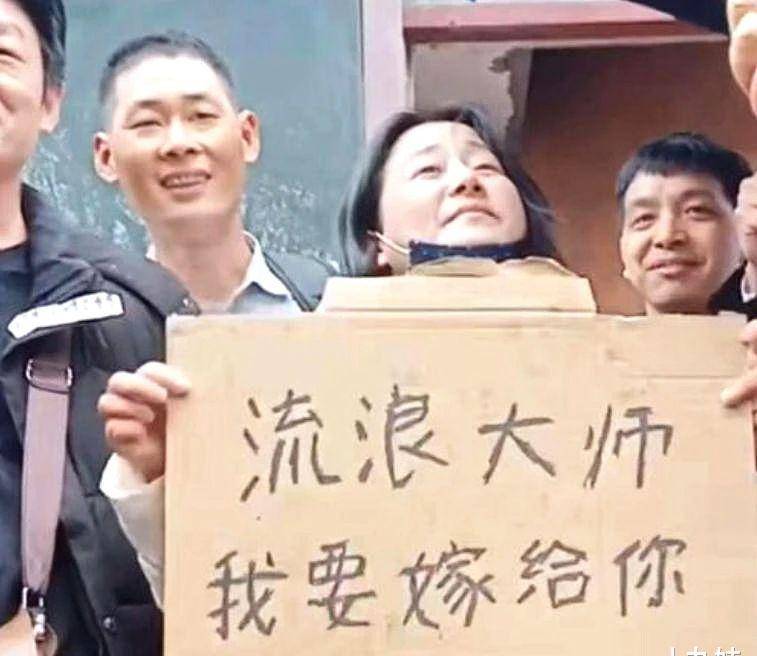 流浪大师
我要嫁给你